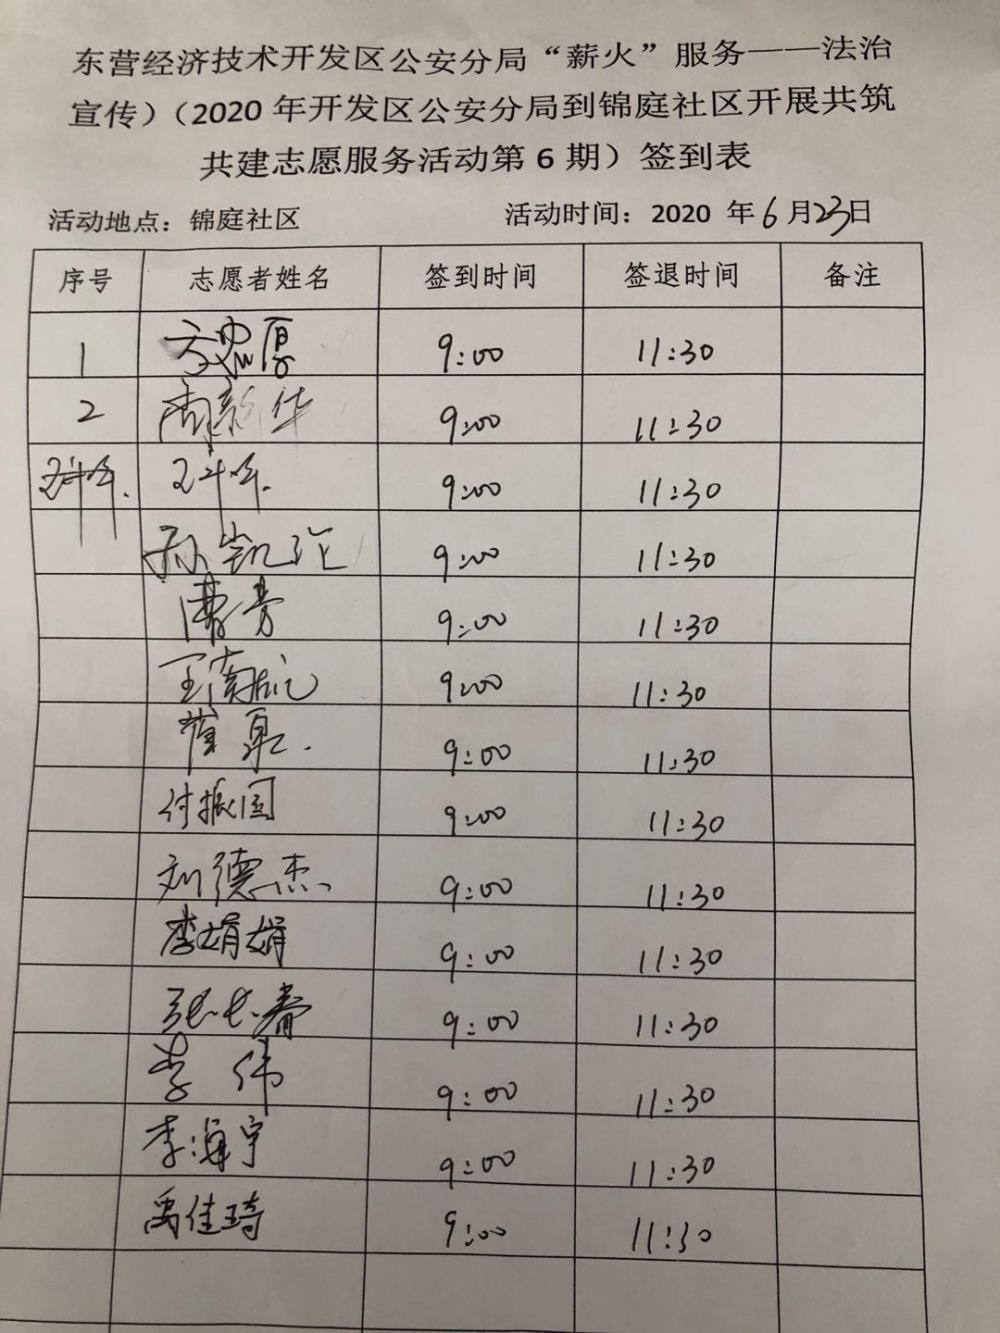 东营经济技术开发区公安分局“薪火”服务——法治
宣传）（2020 年开发区公安分局到锦庭社区开展共筑
共建志愿服务活动第 6 期）签到表
活动地点：锦庭社区 活动时间：2020 年 6 月 23 日
序号 志愿者姓名 签到时间 签退时间 备注
1 9:00 11:30
2 9:00 11:30
9:00 11:30
孙凯 9:00 11:30
曹芳 9:00 11:30
王南航 9:00 11:30
崔泉 9:00 11:30
付振国 9:00 11:30
刘德杰 9:00 11:30
李娟娟 9:00 11:30
张春 9:00 11:30
李伟 9:00 11:30
李海宁 9:00 11:30
禹佳琦 9:00 11:30